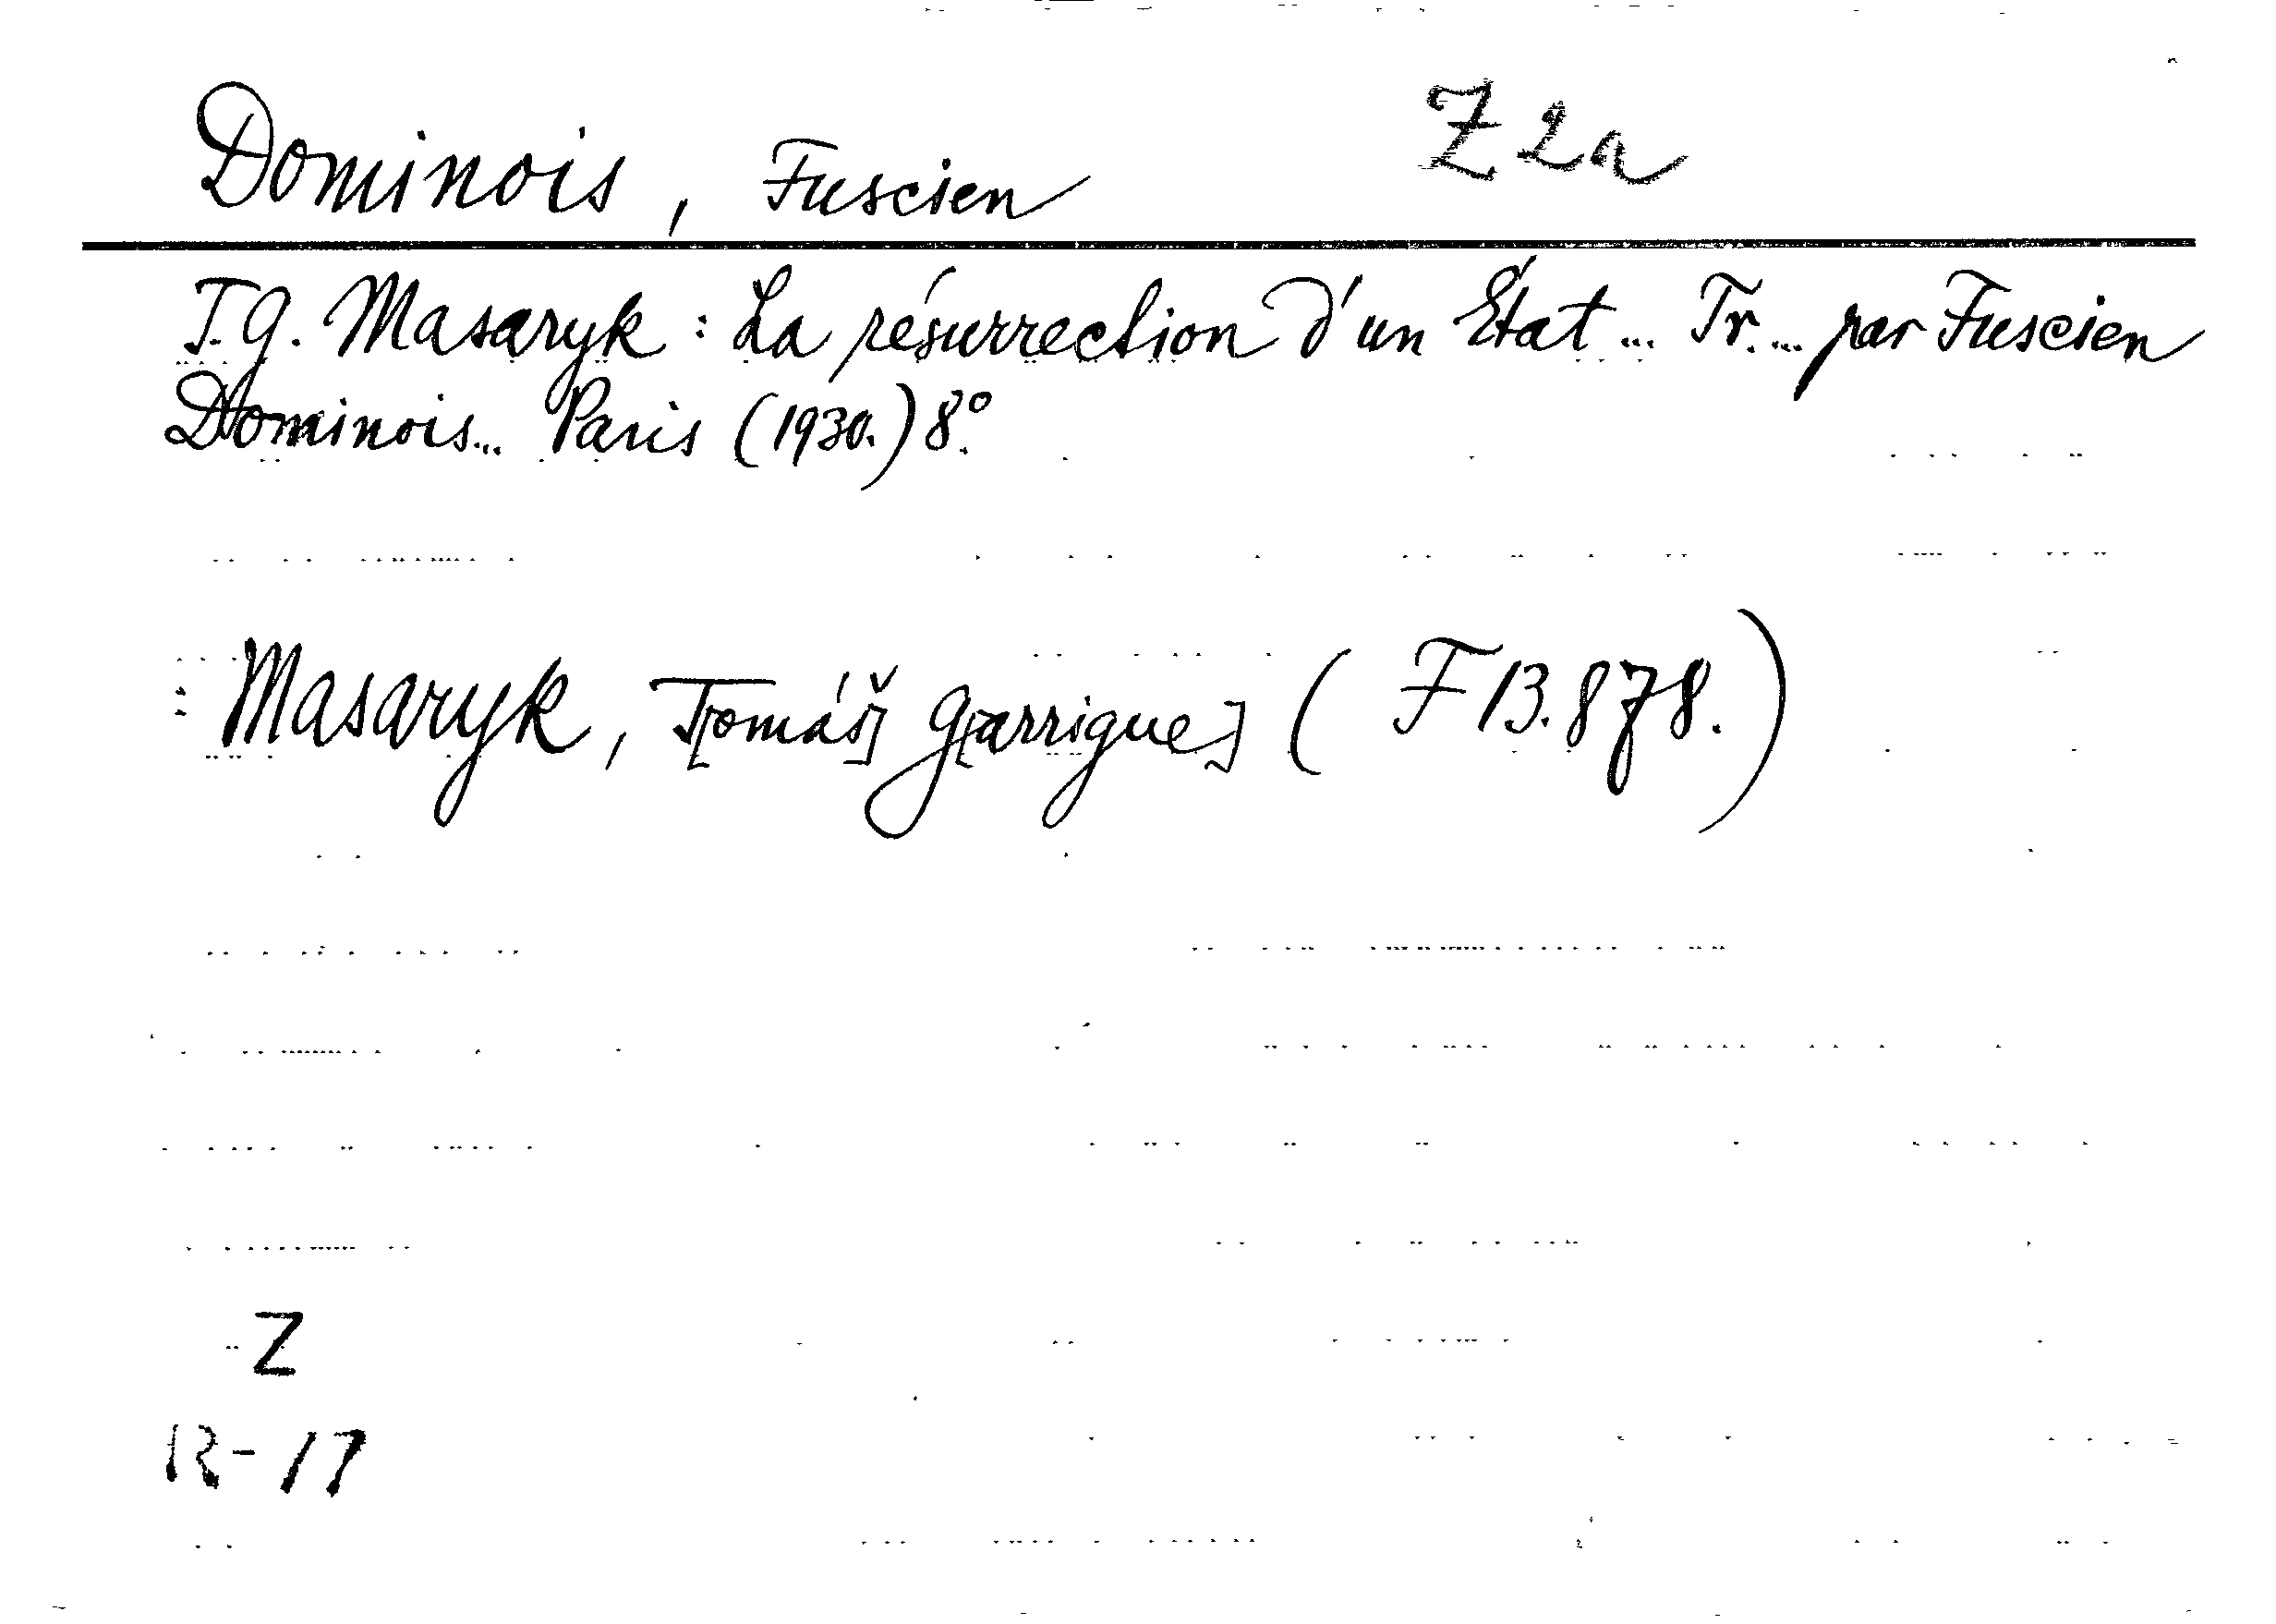 Dominois, Fuscien Z 2a
T. G. Masaryk: La résurrection d'un État... Tr.... par Fuscien
Dominois... Paris (1930.) 8°.
: Masaryk, T[omáš] G[arrigue] (F 13.878.)
Z
12-17